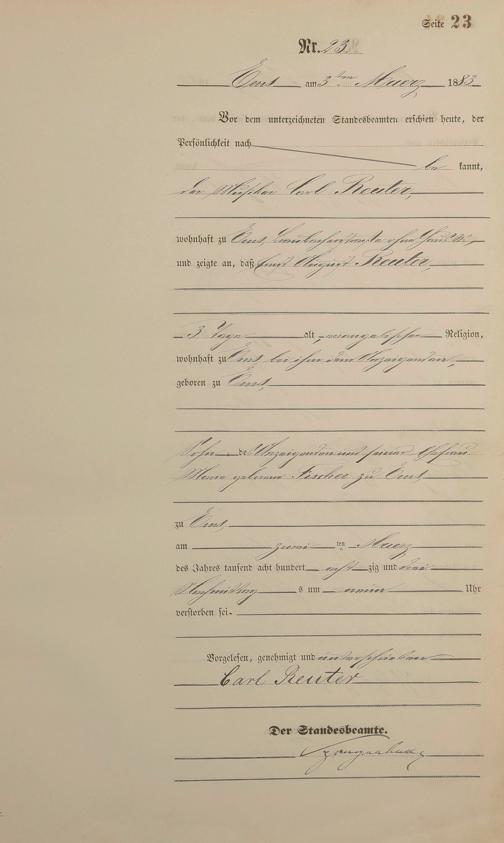 Seite 23
Nr. 23
Ems am 3ten Maerz 1883
Vor dem unterzeichneten Standesbeamten erschien heute, der
Persönlichkeit nach
be kannt,
der Musiker Carl Reuter,
wohnhaft zu Ems, ohne
und zeigte an, daß Ernst August Reuter,
3 Tage alt, evangelischer Religion,
wohnhaft zu Ems bei ihm dem Anzeigenden,
geboren zu Ems,
Sohn des Anzeigenden und seiner Ehefrau
geborene Fischer zu Ems
zu Ems
am zwei ten Maerz
des Jahres tausend acht hundert acht zig und drei
Nachmittag s um neun Uhr
verstorben sei.
Vorgelesen, genehmigt und unterschrieben
Carl Reuter
Der Standesbeamte.